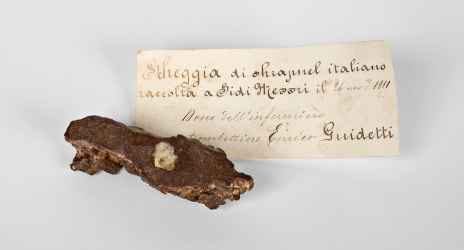 Scheggia di shrapnel italiano
raccolta a Sidi Messri il 26 nov? 1911
Dono dell'infermiere
Enrico Guidetti